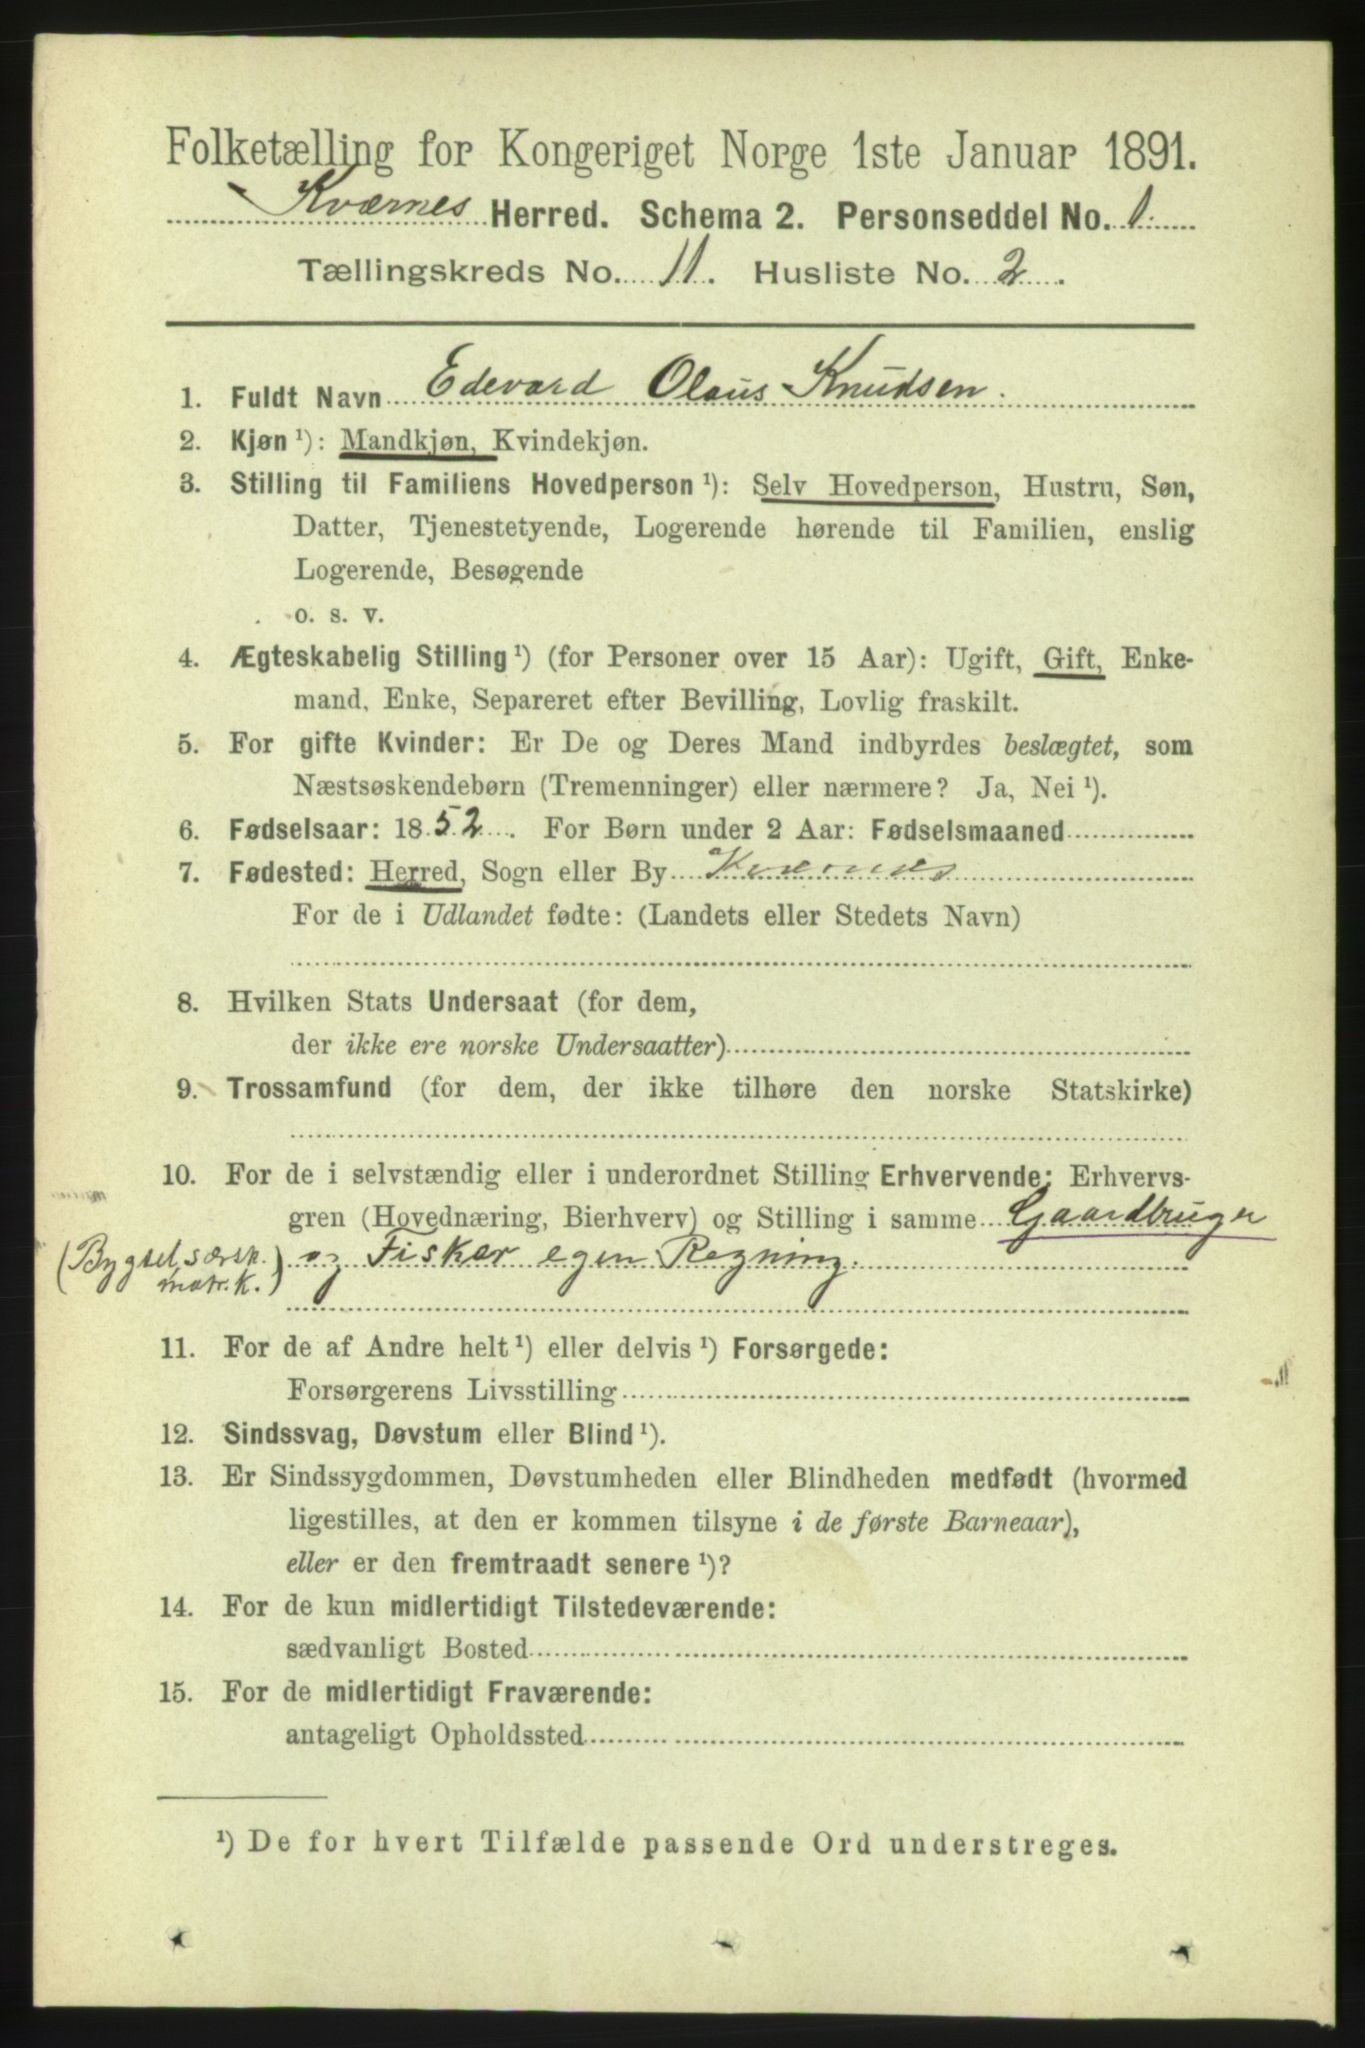 Folketælling for Kongeriget Norge 1ste Januar 1891.
Kværnes Herred. Schema 2. Personseddel No. 1.
Tællingskreds No. 11. Husliste No. 2.
1. Fuldt Navn Edevard Olaus Knudsen.
2. Kjøn ¹): Mandkjøn, Kvindekjøn.
3. Stilling til Familiens Hovedperson ¹): Selv Hovedperson, Hustru, Søn,
Datter, Tjenestetyende, Logerende hørende til Familien, enslig
Logerende, Besøgende
o. s. v.
4. Ægteskabelig Stilling ¹) (for Personer over 15 Aar): Ugift, Gift, Enke-
mand, Enke, Separeret efter Bevilling, Lovlig fraskilt.
5. For gifte Kvinder: Er De og Deres Mand indbyrdes beslægtet, som
Næstsøskendebørn (Tremenninger) eller nærmere? Ja, Nei ¹).
6. Fødselsaar: 1852. For Børn under 2 Aar: Fødselsmaaned
7. Fødested: Herred, Sogn eller By Kværnes
For de i Udlandet fødte: (Landets eller Stedets Navn)
8. Hvilken Stats Undersaat (for dem,
der ikke ere norske Undersaatter)
9. Trossamfund (for dem, der ikke tilhøre den norske Statskirke)
10. For de i selvstændig eller i underordnet Stilling Erhvervende: Erhvervs-
gren (Hovednæring, Bierhverv) og Stilling i samme Gaardbruger
(Bygsel, særsk. matr. K.) og Fisker egen Regning.
11. For de af Andre helt ¹) eller delvis ¹) Forsørgede:
Forsørgerens Livsstilling
12. Sindssvag, Døvstum eller Blind ¹).
13. Er Sindssygdommen, Døvstumheden eller Blindheden medfødt (hvormed
ligestilles, at den er kommen tilsyne i de første Barneaar),
eller er den fremtraadt senere ¹)?
14. For de kun midlertidigt Tilstedeværende:
sædvanligt Bosted
15. For de midlertidigt Fraværende:
antageligt Opholdssted
¹) De for hvert Tilfælde passende Ord understreges.